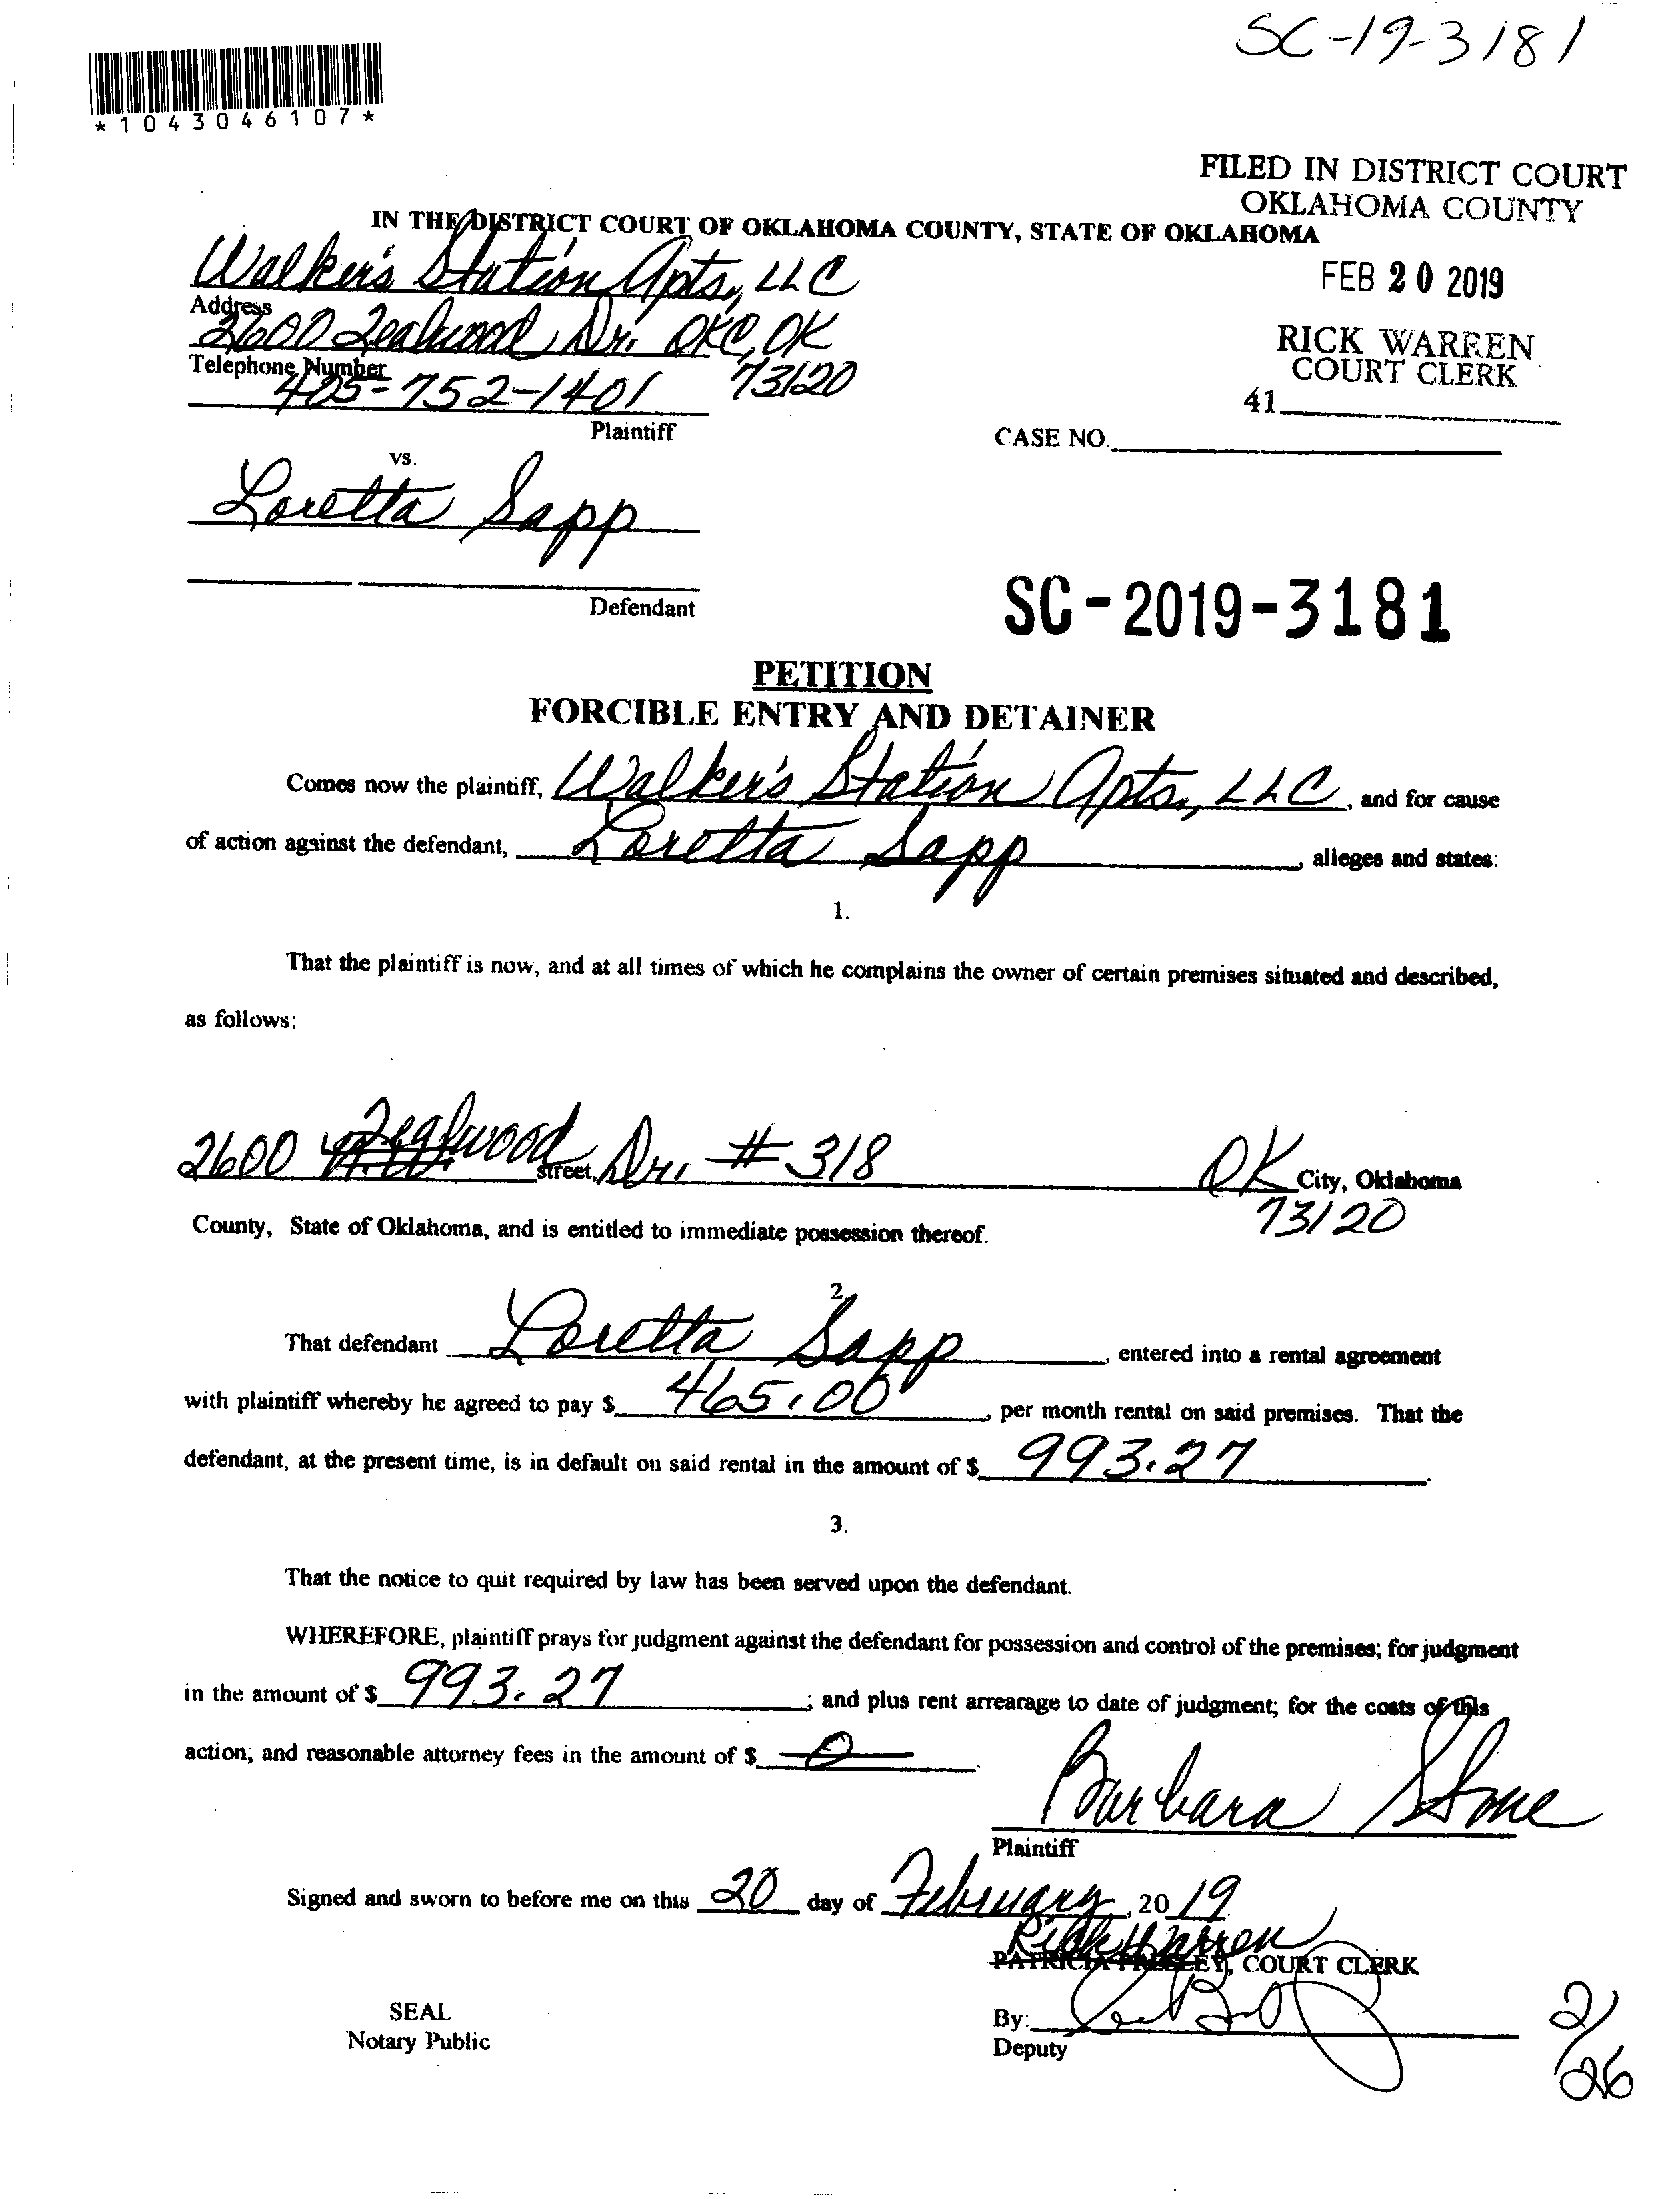 SC-19-3181
*1043046107*
FILED IN DISTRICT COURT
OKLAHOMA COUNTY
IN THE DISTRICT COURT OF OKLAHOMA COUNTY, STATE OF OKLAHOMA
FEB 20 2019
RICK WARREN
COURT CLERK
41
Walker's Station Apts, LLC
Address
2600 Tealwood Dr. OKC, OK
Telephone Number
405-752-1401 73120
Plaintiff
CASE NO.
vs.
Loretta Sapp
Defendant
SC-2019-3181
PETITION
FORCIBLE ENTRY AND DETAINER
Comes now the plaintiff, Walker's Station Apts, LLC, and for cause
of action against the defendant, Loretta Sapp, alleges and states:
1.
That the plaintiff is now, and at all times of which he complains the owner of certain premises situated and described,
as follows:
2600 Tealwood street, Dr. # 318 OK City, Oklahoma
73120
County, State of Oklahoma, and is entitled to immediate possession thereof.
2.
That defendant Loretta Sapp, entered into a rental agreement
with plaintiff whereby he agreed to pay $ 465.00, per month rental on said premises. That the
defendant, at the present time, is in default on said rental in the amount of $ 993.27.
3.
That the notice to quit required by law has been served upon the defendant.
WHEREFORE, plaintiff prays for judgment against the defendant for possession and control of the premises; for judgment
in the amount of $ 993.27; and plus rent arrearage to date of judgment; for the costs of this
action; and reasonable attorney fees in the amount of $ 0.
Barbara Stone
Plaintiff
Signed and sworn to before me on this 20 day of February, 2019
Rick Warren
PATRICIA PRESLEY, COURT CLERK
SEAL
Notary Public
By:
Deputy
2/26